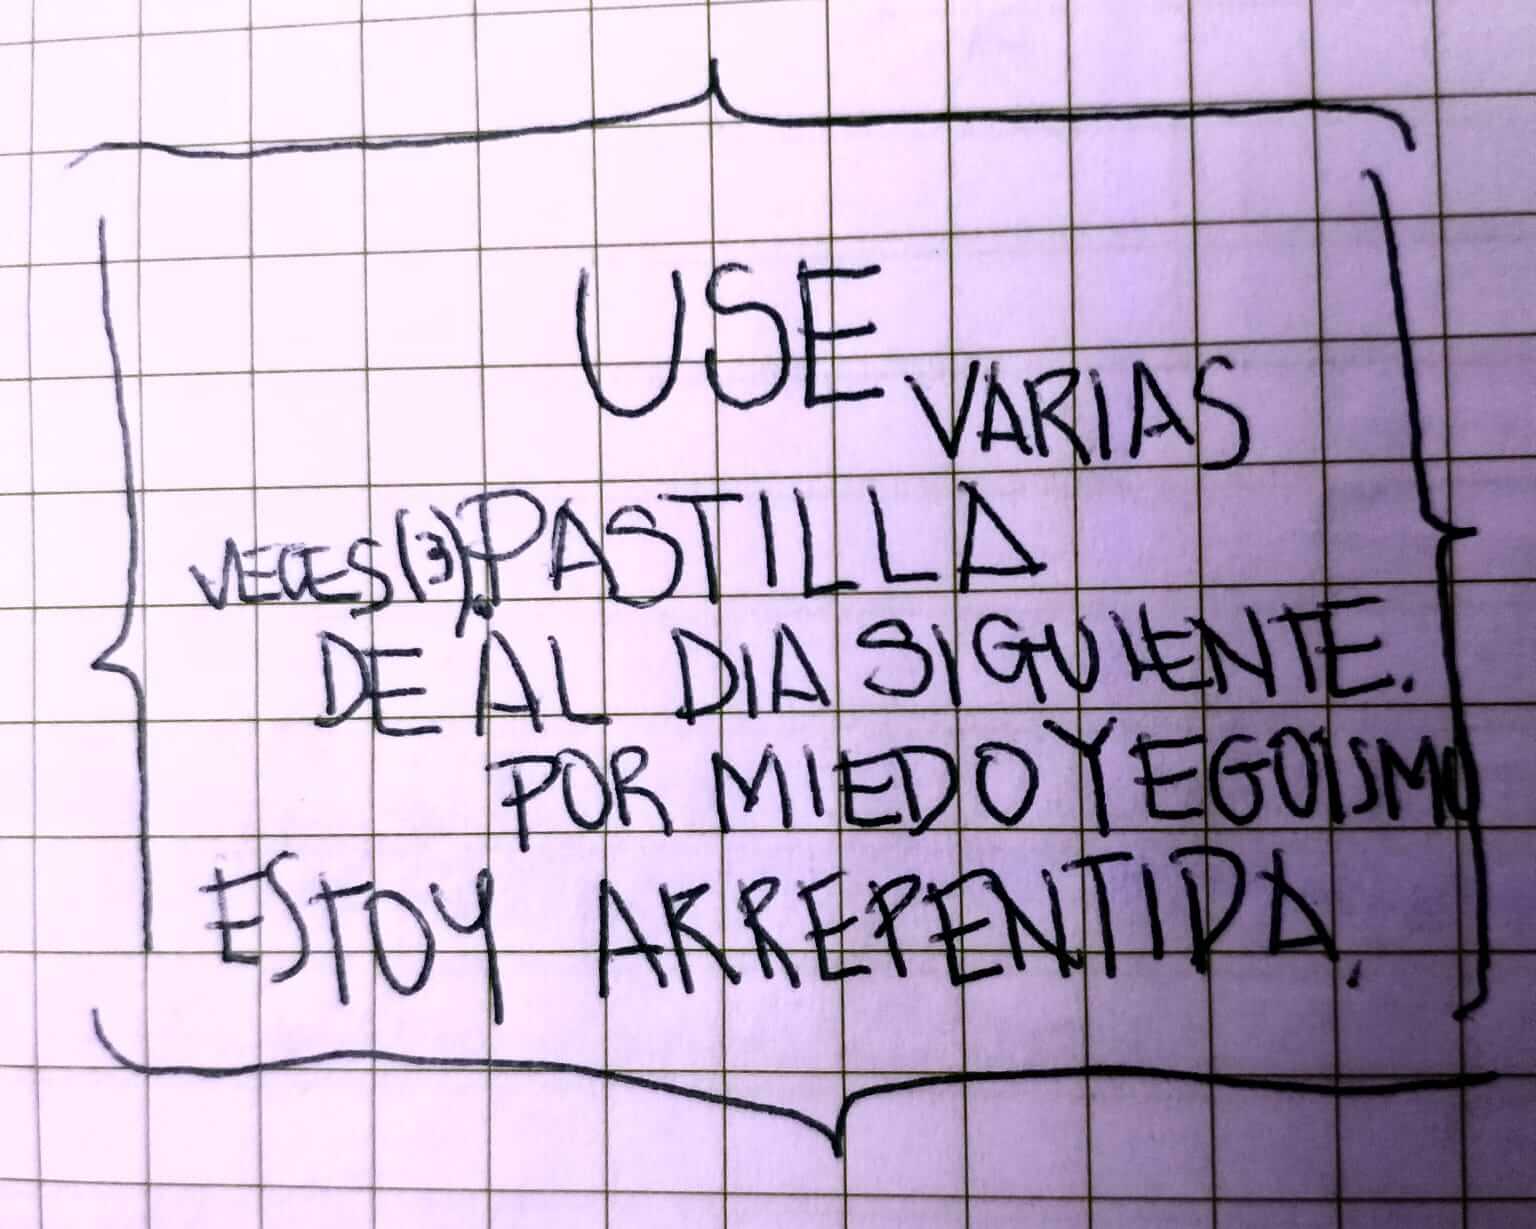 USE
VARIAS
VECES(3).PASTILLA
DE AL DIA SIGUIENTE.
POR MIEDO Y EGOISMO
ESTOY ARREPENTIDA.